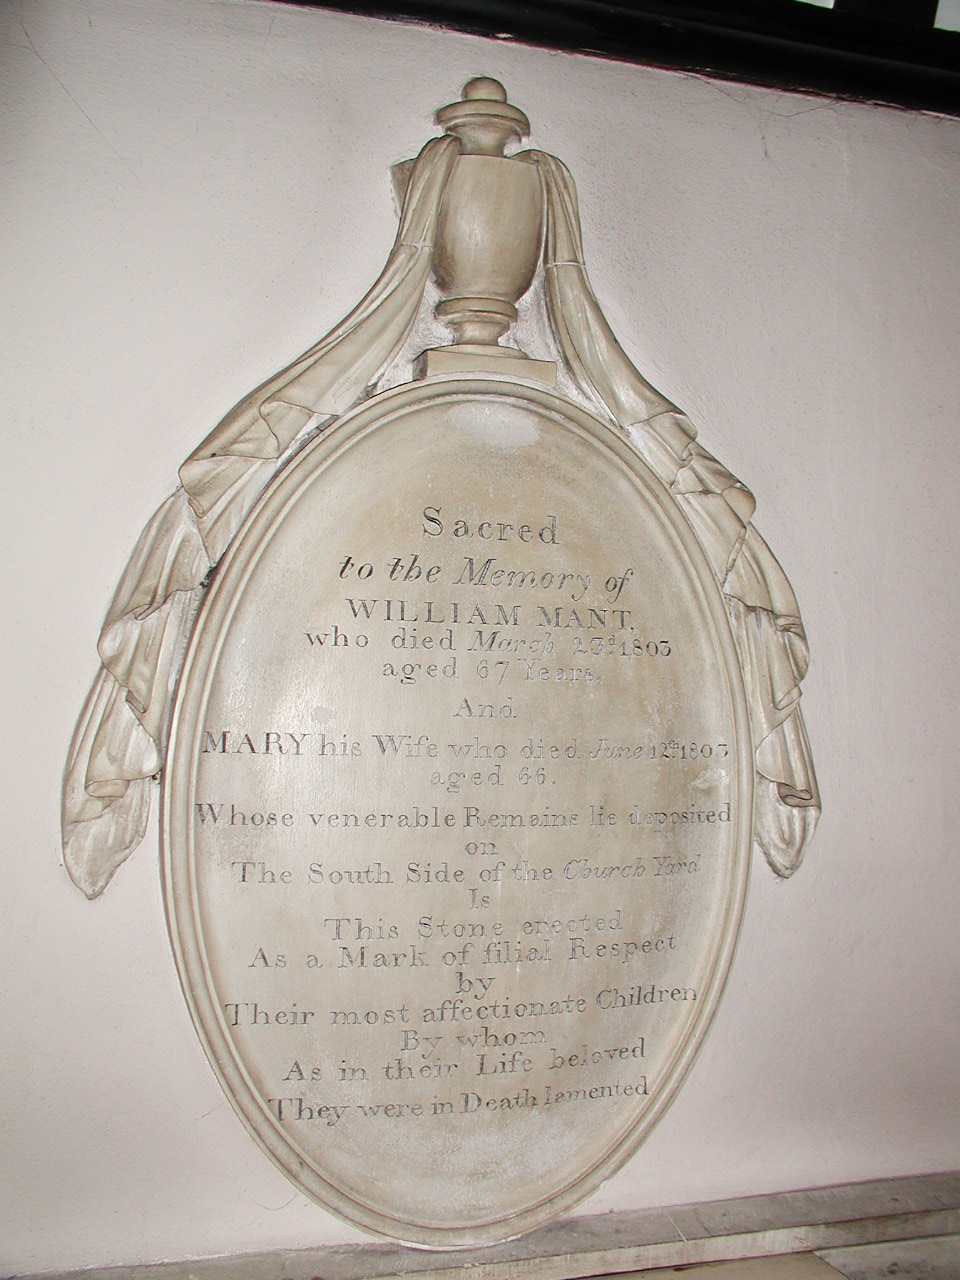 Sacred
to the Memory of
WILLIAM MANT,
who died March 23d. 1803
aged 67 Years,
And
MARY his Wife who died June 12th. 1803
aged 66.
Whose venerable Remains lie deposited
on
The South Side of the Church Yard
Is
This Stone erected
As a Mark of filial Respect
by
Their most affectionate Children
By whom
As in their Life beloved
They were in Death lamented